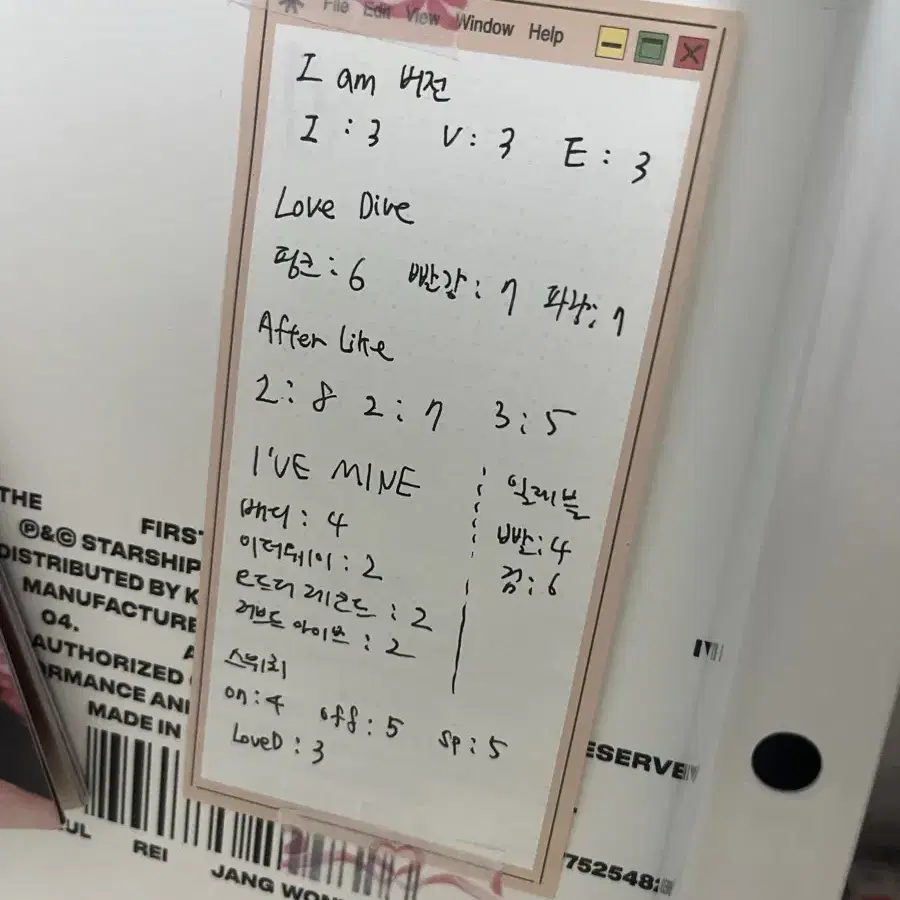 File Edit View Window Help
I am 버전
I : 3 V : 3 E : 3
Love Dive
핑크 : 6 빨강 : 7 파랑 : 7
After Like
2 : 8 2 : 7 3 : 5
I'VE MINE
배디 : 4
이더웨이 : 2
오드더 레코드 : 2
러브드 아이브 : 2
일레븐
빨 : 4
검 : 6
스위치
on : 4 off : 5 sp : 5
LoveD : 3
THE FIRST
℗&© STARSHIP
DISTRIBUTED BY K
MANUFACTURE
04.
AUTHORIZED
ORMANCE AND
MADE IN
ESERVE
REI
JANG WON